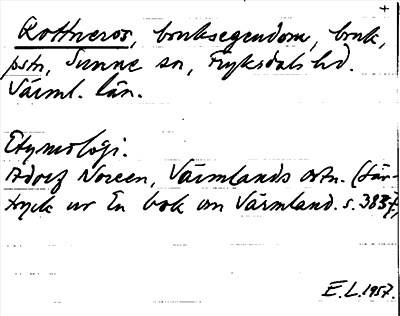 +
Rottneros, bruksegendom, bruk,
pstn, Sunne sn, Fryksdals hd.
Värml. län.
Etymologi.
Adolf Noreen, Värmlands ortn. (Sär-
tryck ur En bok om Värmland. s. 383 f.)
E.L. 1957.